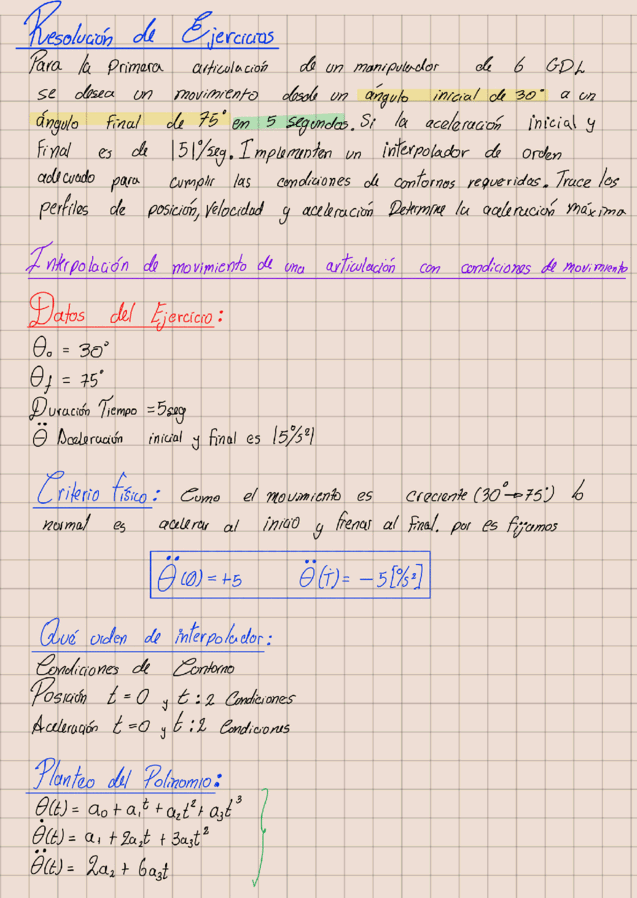 Resolución de Ejercicios
Para la Primera articulación de un manipulador de 6 GDL
se desea un movimiento desde un ángulo inicial de 30° a un
ángulo final de 75° en 5 segundos. Si la aceleración inicial y
Final es de |5|°/seg. Implementen un interpolador de orden
adecuado para cumplir las condiciones de contornos requeridas. Trace los
perfiles de posición, Velocidad y aceleración Determine la aceleración máxima
Interpolación de movimiento de una articulación con condiciones de movimiento
Datos del Ejercicio:
θ₀ = 30°
θf = 75°
Duración Tiempo = 5seg
θ̈ Aceleración inicial y final es |5°/s²|
Criterio físico: Como el movimiento es creciente (30°→75°) lo
normal es acelerar al inicio y frenar al final. por es fijamos
θ̈(0) = +5 θ̈(T) = -5[°/s²]
Qué orden de interpolador:
Condiciones de Contorno
Posición t = 0 y t : 2 Condiciones
Aceleración t = 0 y t : 2 Condiciones
Planteo del Polinomio:
θ(t) = a₀ + a₁t + a₂t² + a₃t³
θ̇(t) = a₁ + 2a₂t + 3a₃t²
θ̈(t) = 2a₂ + 6a₃t